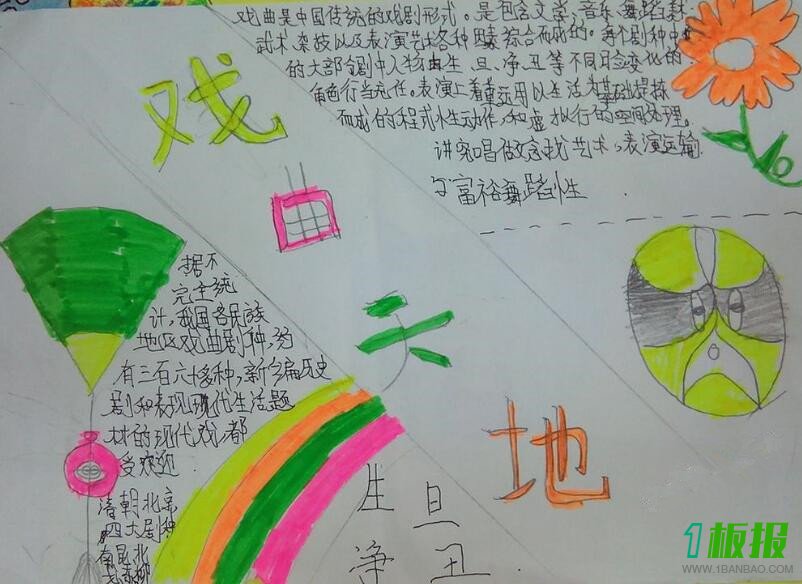 戏曲是中国传统的戏剧形式。是包含文学、音乐、舞蹈、美
武术、杂技以及表演艺术各种因素综合而成的。每个剧种中
的大部剧中人物由生、旦、净、丑等不同脸变化的
角色行当充任。表演上着重运用以生活为基础提炼
而成的程式性动作,和虚拟行的空间处理。
讲究唱做念找艺术。表演运输
富裕舞蹈性
戏
曲
天
地
据不
完全统
计,我国各民族
地区戏曲剧种,约
有三百六十多种,新编历史
剧和表现现代生活题
材的现代戏,都
受欢迎
清朝北京
四大剧种
南昆北
生 旦
净 丑
1板报
WWW.1BANBAO.COM